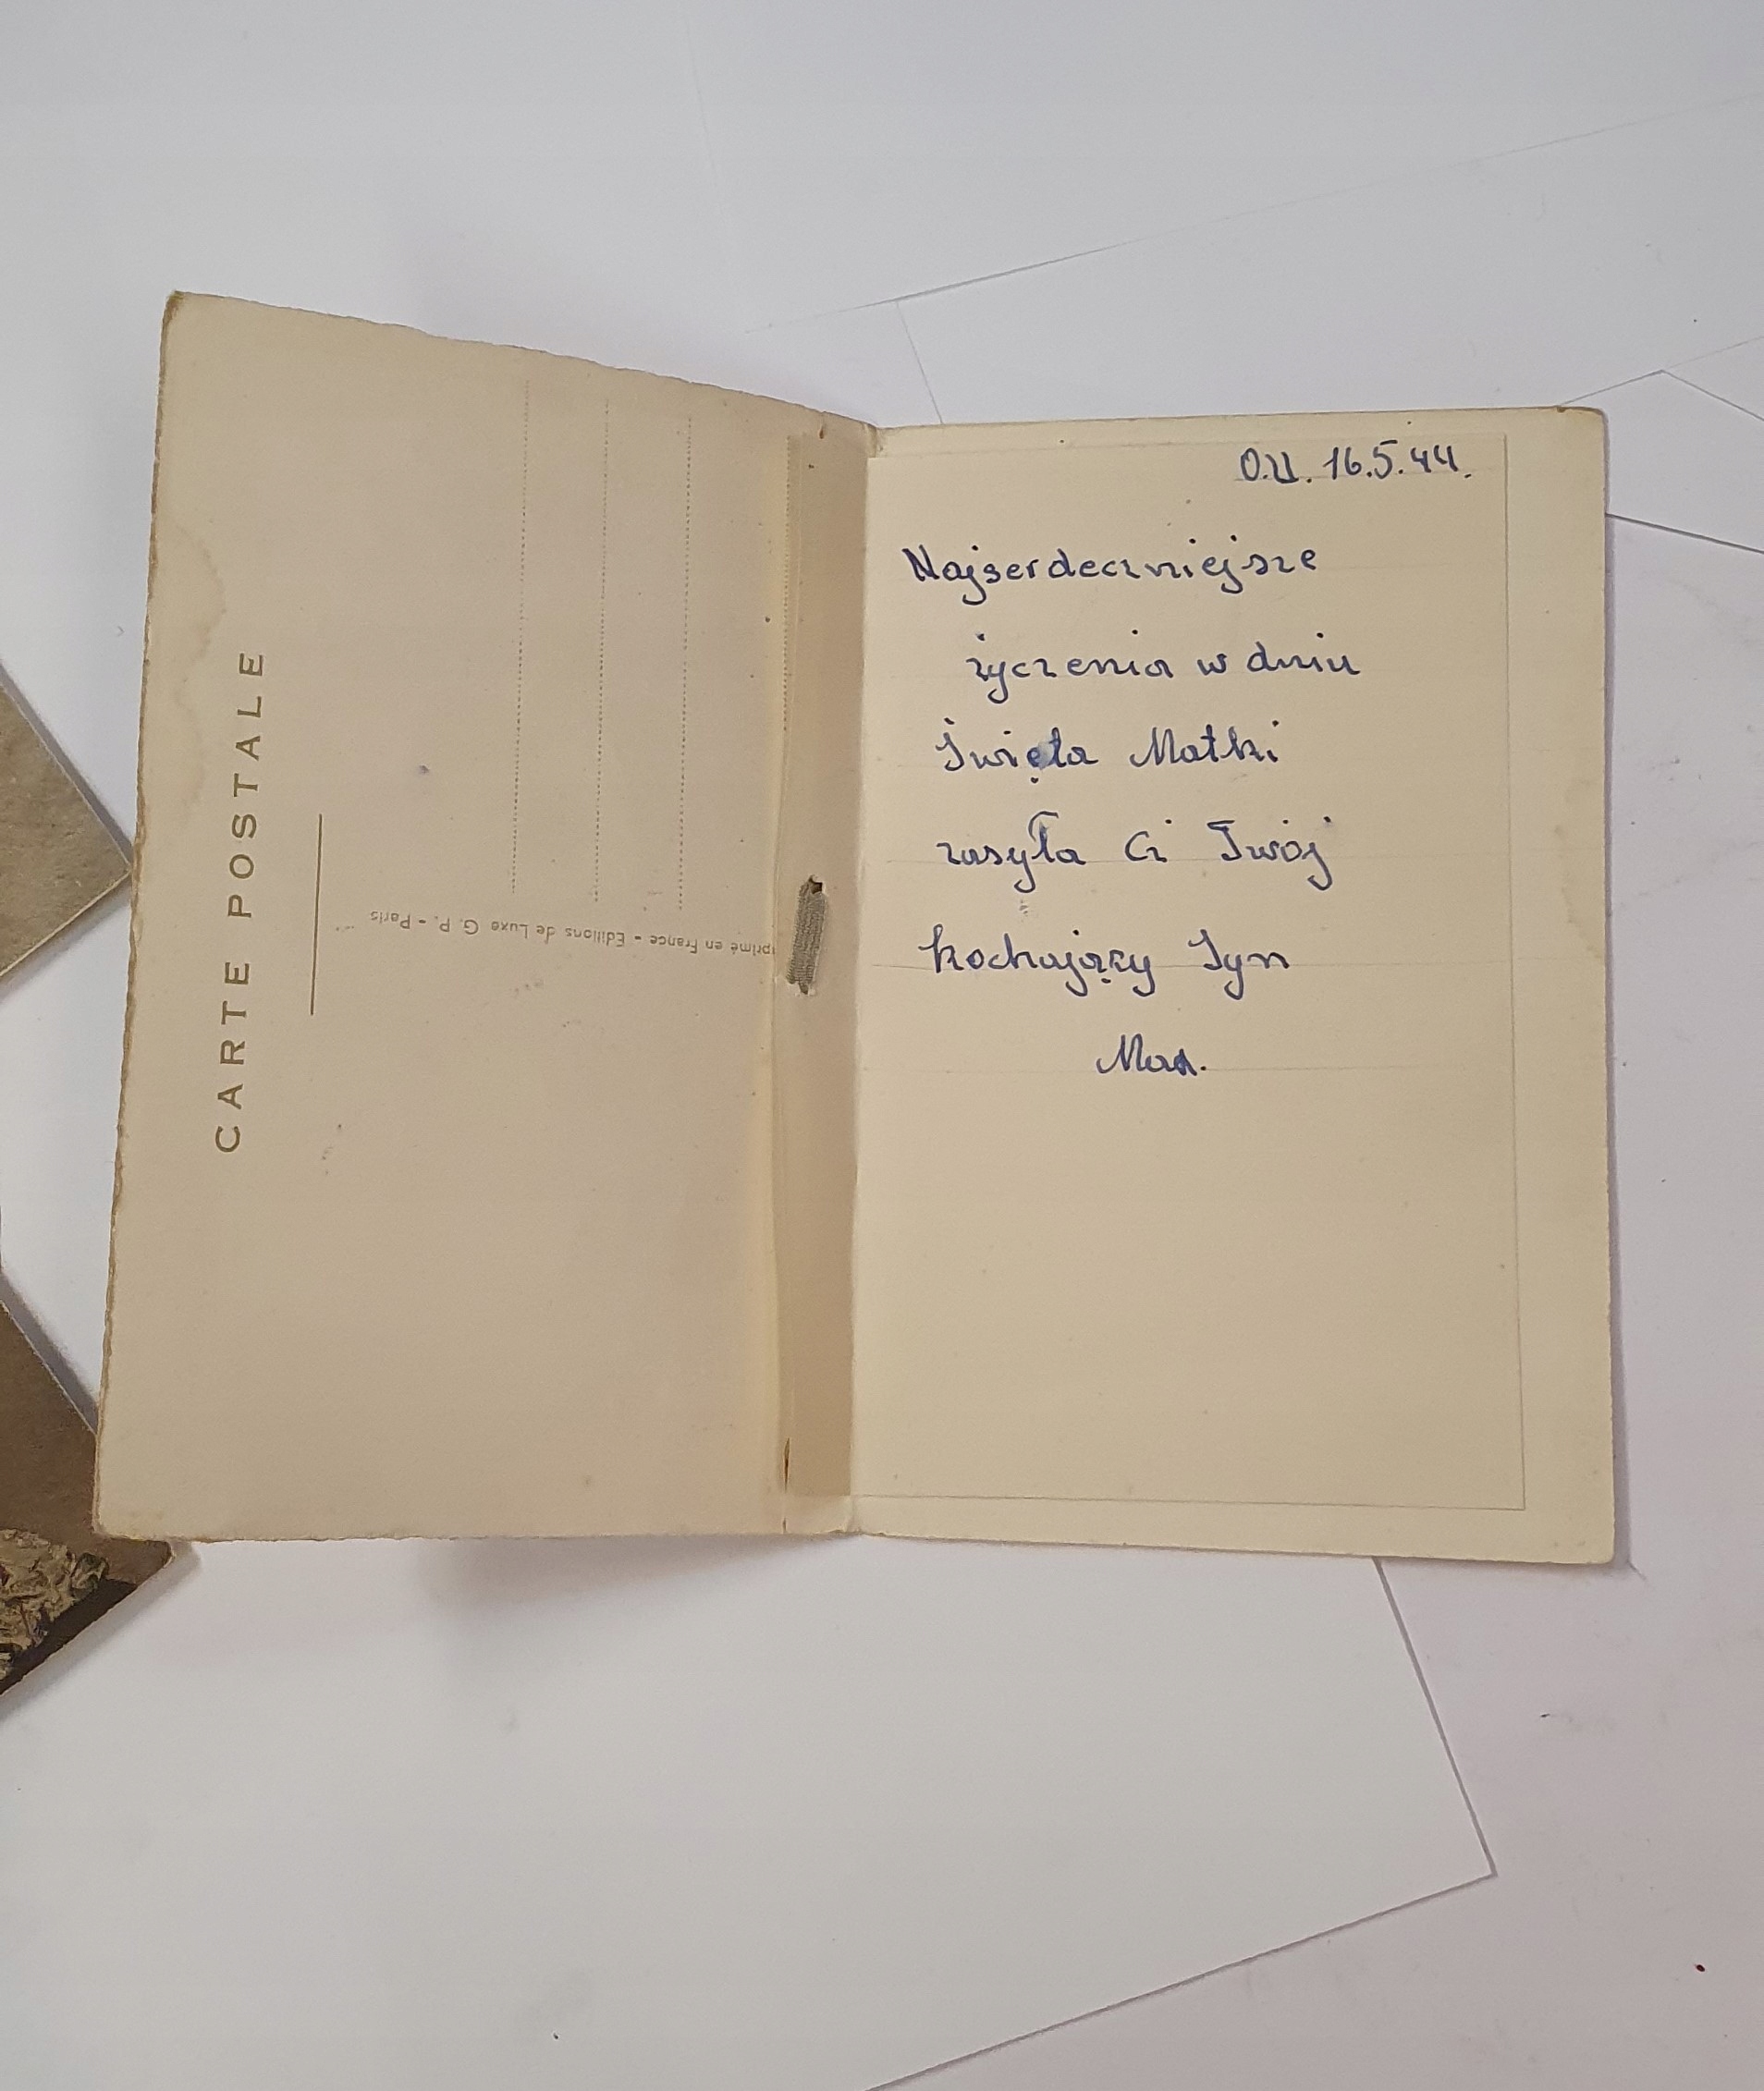 CARTE POSTALE
primé en France - Editions de Luxe G. P. - Paris
O.U. 16.5.44.
Najserdeczniejsze
życzenia w dniu
Święta Matki
zasyła Ci Twój
kochający Syn